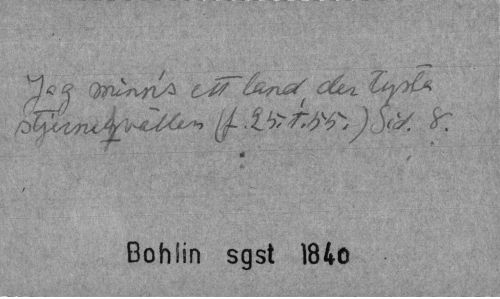 Jag minn's ett land der tysta
stjerneqvällen (f. 25. t. 55.) Sid. 8.
Bohlin sgst 1840